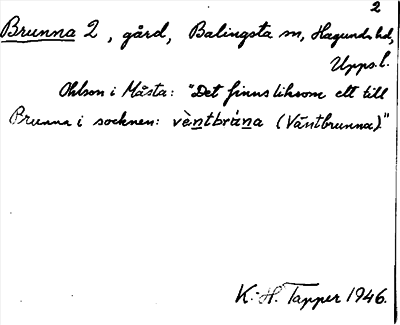 2
Brunna 2, gård, Balingsta sn, Hagunda hd,
Upps. l.
Ohlson i Måsta: "Det finns liksom ett till
Brunna i socknen: vä̀ntbrúna (Väntbrunna)."
K. H. Tapper 1946.